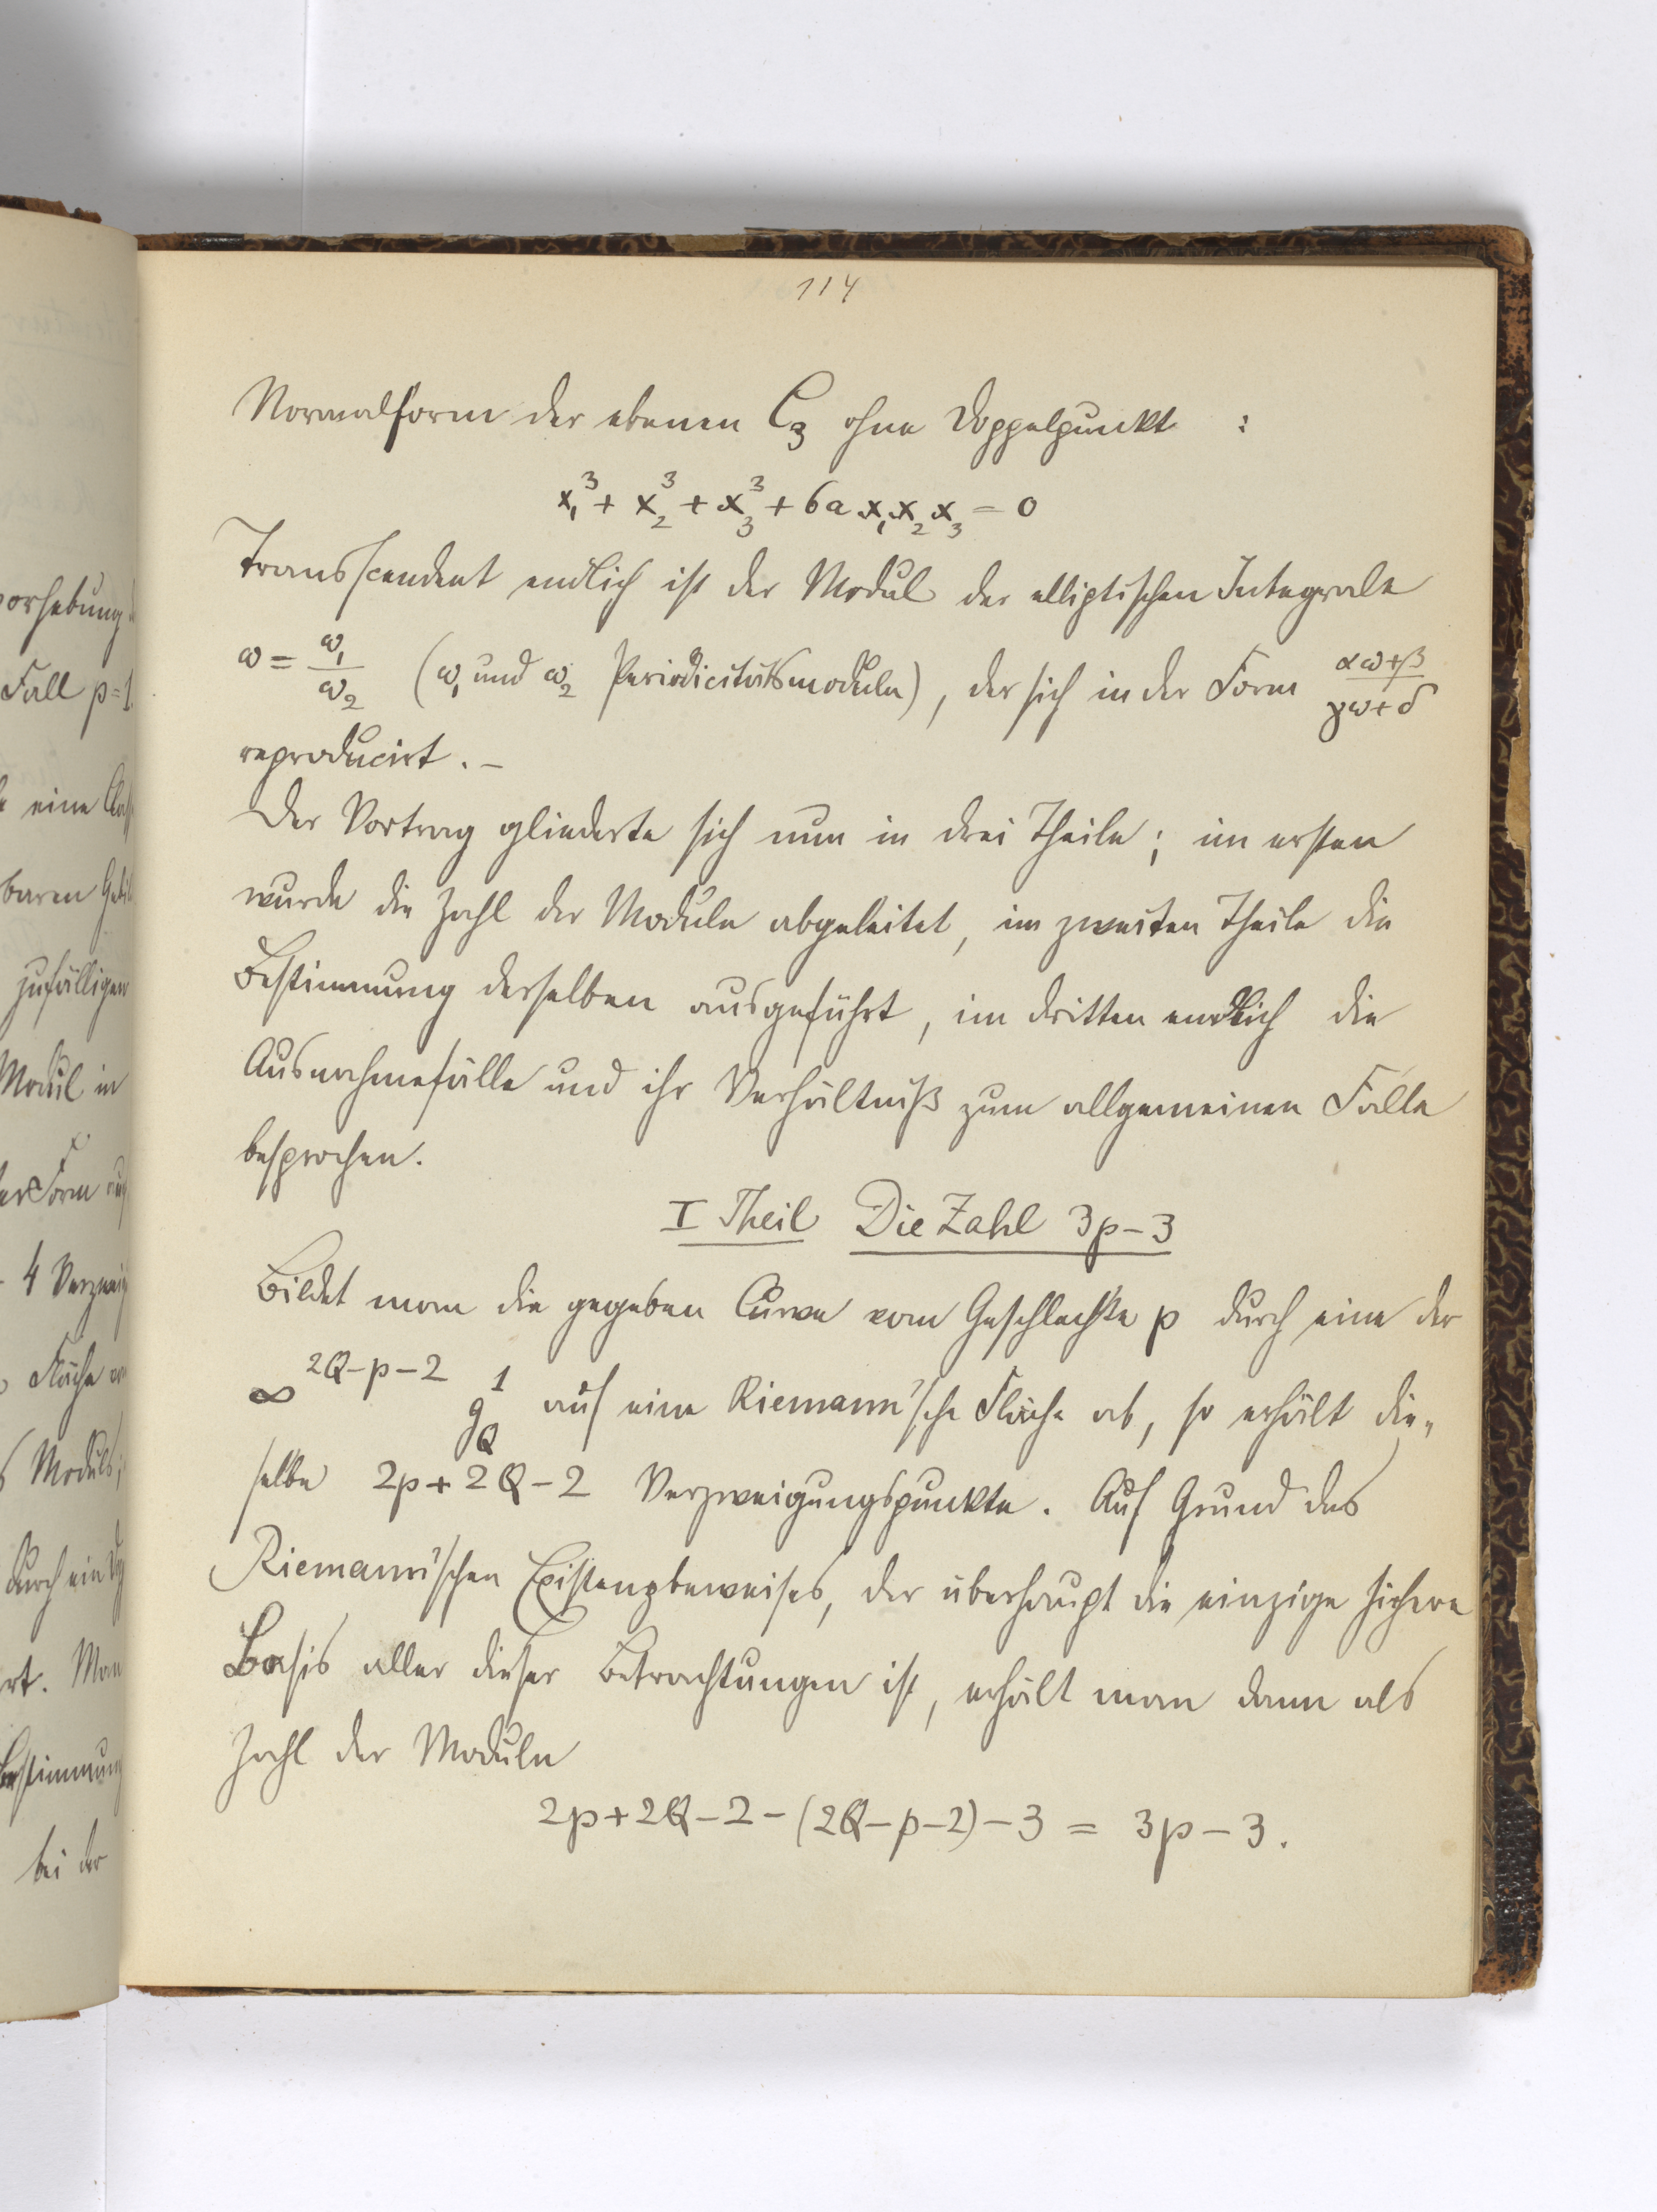 114
Normalform der ebenen C₃ ohne Doppelpunkt :
x₁³ + x₂³ + x₃³ + 6a x₁x₂x₃ = 0
Transscendent endlich ist der Modul der elliptischen Integrale
ω = ω₁/ω₂ (ω₁ und ω₂ Periodicitätsmoduln), der sich in der Form (αω+β)/(γω+δ)
reproducirt. –
Der Vortrag gliederte sich nun in drei Theile; im ersten
wurde die Zahl der Moduln abgeleitet, im zweiten Theile die
Bestimmung derselben ausgeführt, im dritten endlich die
Ausnahmefälle und ihr Verhältniß zum allgemeinen Falle
besprochen.
I Theil Die Zahl 3p–3
Bildet man die gegeben Curve vom Geschlechte p durch eine der
∞^(2Q–p–2) g_Q^1 auf eine Riemann'sche Fläche ab, so erhält die„
selbe 2p+2Q–2 Verzweigungspunkte. Auf Grund des
Riemann'schen Existenzbeweises, der überhaupt die einzige sichere
Basis aller dieser Betrachtungen ist, erhält man dann als
Zahl der Moduln
2p+2Q–2–(2Q–p–2)–3 = 3p–3.
orhebung
Fall p=1.
eine
baren
zufälligen
Modul in
Form
4
Fläche
Moduls;
durch ein
rt. Man
Bestimmung
bei der